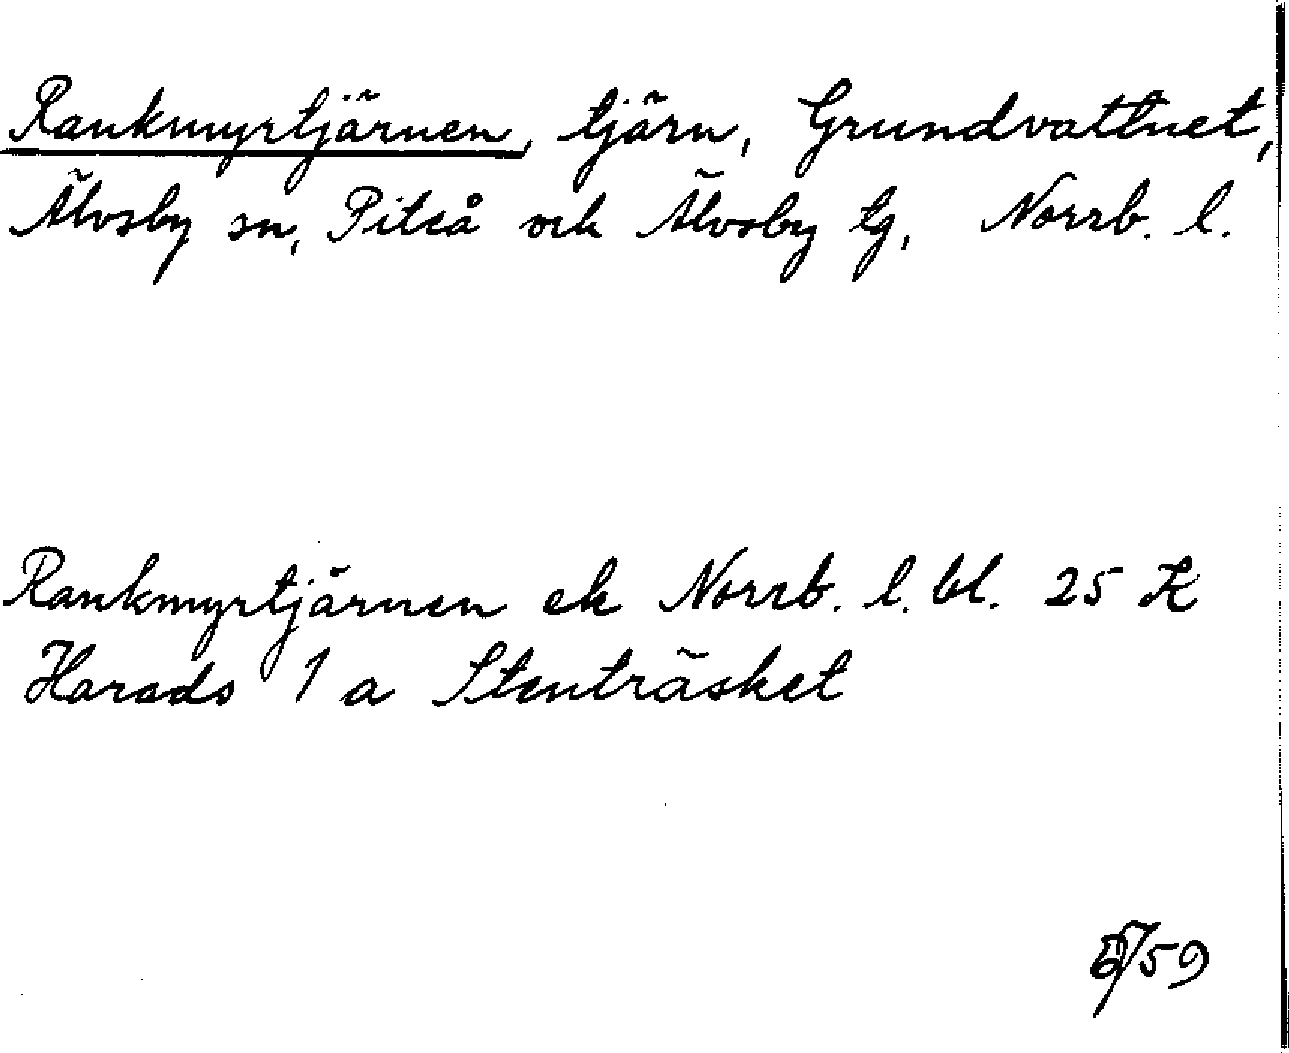 Rankmyrtjärnen, tjärn, Grundvattnet,
Älvsby sn, Piteå och Älvsby tg, Norrb. l.
Rankmyrtjärnen ek Norrb. l. bl. 25 K
Harads 1 a Stenträsket